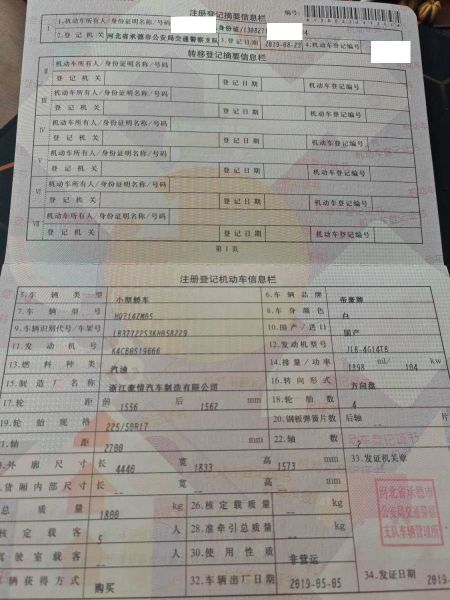 注册登记摘要信息栏
编号:
Ⅰ 1.机动车所有人/身份证明名称/号码 身份证/130821
2.登记机关 河北省承德市公安局交通警察支队 3.登记日期 2019-08-23 4.机动车登记编号
转移登记摘要信息栏
Ⅱ 机动车所有人/身份证明名称/号码
登记机关 登记日期 机动车登记编号
Ⅲ 机动车所有人/身份证明名称/号码
登记机关 登记日期 机动车登记编号
Ⅳ 机动车所有人/身份证明名称/号码
登记机关 登记日期 机动车登记编号
Ⅴ 机动车所有人/身份证明名称/号码
登记机关 登记日期 机动车登记编号
Ⅵ 机动车所有人/身份证明名称/号码
登记机关 登记日期 机动车登记编号
Ⅶ 机动车所有人/身份证明名称/号码
登记机关 登记日期 机动车登记编号
第1页
注册登记机动车信息栏
5.车辆类型 小型轿车 6.车辆品牌 帝豪牌
7.车辆型号 HQ7142M05 8.车身颜色 白
9.车辆识别代号/车架号 10.国产/进口 国产
11.发动机号 K4CB0519666 12.发动机型号 JLB-4G14TB
13.燃料种类 汽油 14.排量/功率 1398 ml/ 104 kw
15.制造厂名称 浙江豪情汽车制造有限公司 16.转向形式 方向盘
17.轮距 前 1556 后 1562 mm 18.轮胎数 4
19.轮胎规格 225/50R17 20.钢板弹簧片数 后轴 -- 片
21.轴距 2700 mm 22.轴数 2
外廓尺寸 长 4440 宽 1833 高 1573 mm 33.发证机关章
货厢内部尺寸 长 -- 宽 -- 高 -- mm
总质量 1800 kg 26.核定载质量 -- kg
核定载客 5 人 28.准牵引总质量 -- kg
驾驶室载客 -- 人 30.使用性质 非营运
车辆获得方式 购买 32.车辆出厂日期 2019-05-05 34.发证日期
河北省承德市
公安局交通警察
支队车辆管理所